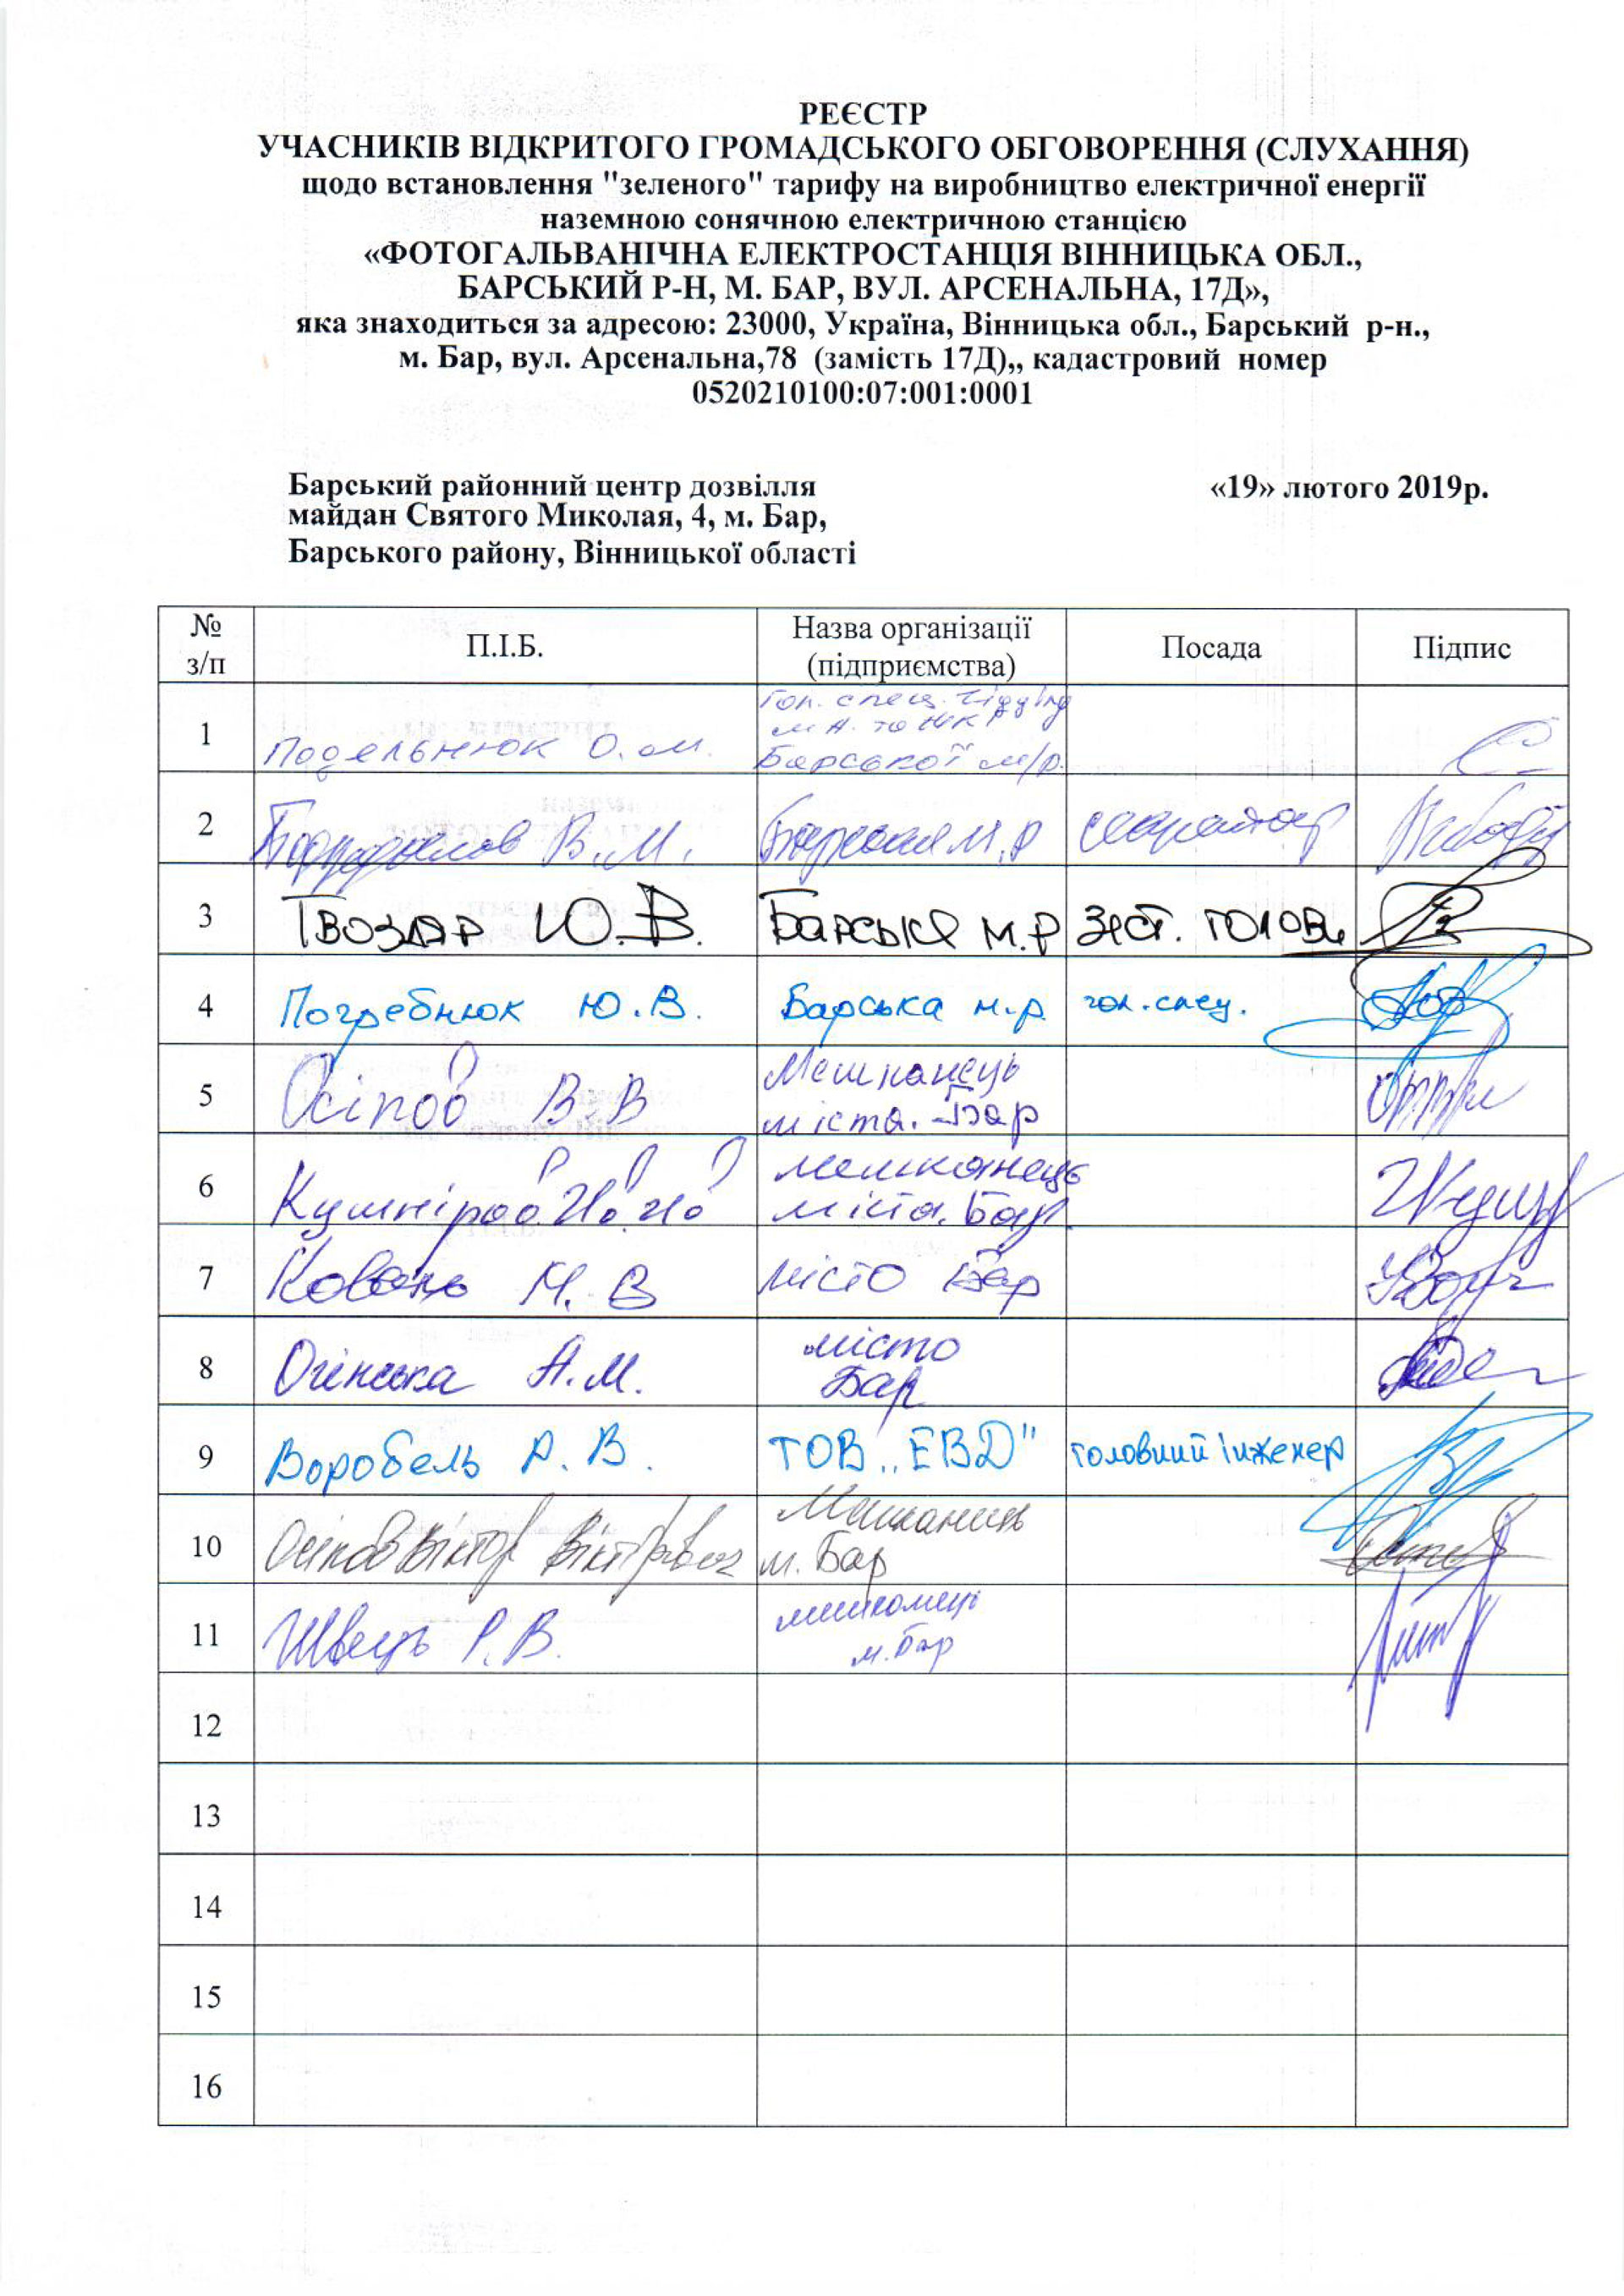 РЕЄСТР
УЧАСНИКІВ ВІДКРИТОГО ГРОМАДСЬКОГО ОБГОВОРЕННЯ (СЛУХАННЯ)
щодо встановлення "зеленого" тарифу на виробництво електричної енергії
наземною сонячною електричною станцією
«ФОТОГАЛЬВАНІЧНА ЕЛЕКТРОСТАНЦІЯ ВІННИЦЬКА ОБЛ.,
БАРСЬКИЙ Р-Н, М. БАР, ВУЛ. АРСЕНАЛЬНА, 17Д»,
яка знаходиться за адресою: 23000, Україна, Вінницька обл., Барський р-н.,
м. Бар, вул. Арсенальна,78 (замість 17Д),, кадастровий номер
0520210100:07:001:0001
Барський районний центр дозвілля «19» лютого 2019р.
майдан Святого Миколая, 4, м. Бар,
Барського району, Вінницької області
№ з/п П.І.Б. Назва організації (підприємства) Посада Підпис
1 О.М. Гол. спец. Барської м/р.
2 В.М. секретар
3 Гвоздяр Ю.В. Барська м.р заст. голови
4 Погребнюк Ю.В. Барська м.р. гол. спец.
5 Осіпов В.В Мешканець міста. Бар
6 мешканець міста. Бар
7 М. В місто Бар
8 Огінська А.М. місто Бар
9 Воробель Р. В. ТОВ „ЕВД" головний інженер
10 Осіпов Віктор Вікторович м. Бар
11 Швець Р.В. м. Бар
12
13
14
15
16